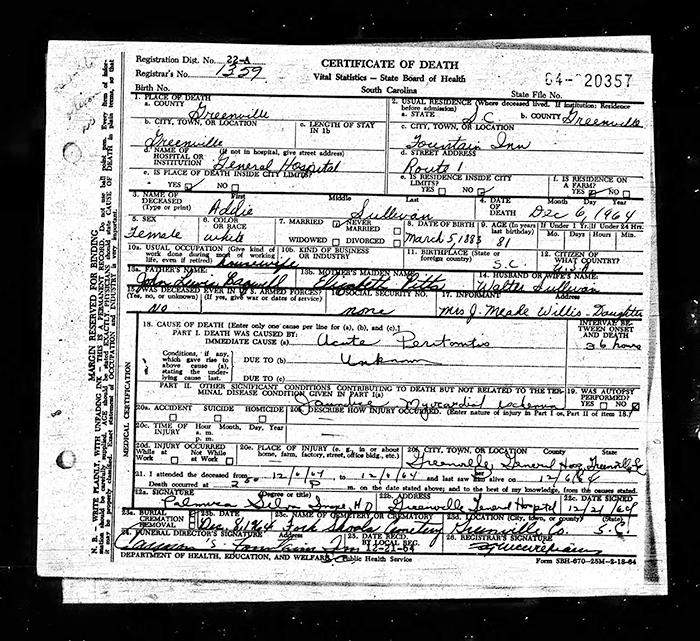 Registration Dist. No. 22-A
Registrar's No. 1359
Birth No.
CERTIFICATE OF DEATH
Vital Statistics — State Board of Health
South Carolina
64- 20357
State File No.
1. PLACE OF DEATH
a. COUNTY
Greenville
2. USUAL RESIDENCE (Where deceased lived. If institution: Residence before admission)
a. STATE S.C. b. COUNTY Greenville
b. CITY, TOWN, OR LOCATION
Greenville
c. LENGTH OF STAY IN 1b
c. CITY, TOWN, OR LOCATION
Fountain Inn
d. NAME OF HOSPITAL OR INSTITUTION (If not in hospital, give street address)
General Hospital
d. STREET ADDRESS
Route 1
e. IS PLACE OF DEATH INSIDE CITY LIMITS?
YES NO
e. IS RESIDENCE INSIDE CITY LIMITS?
YES NO
f. IS RESIDENCE ON A FARM?
YES NO
3. NAME OF DECEASED (Type or print)
First Middle Last
Addie Sullivan
4. DATE OF DEATH Month Day Year
Dec 6, 1964
5. SEX
Female
6. COLOR OR RACE
white
7. MARRIED NEVER MARRIED
WIDOWED DIVORCED
8. DATE OF BIRTH
March 5, 1883
9. AGE (In years last birthday)
81
If Under 1 Yr. If Under 24 Hrs.
Mos. Days Hours Min.
10a. USUAL OCCUPATION (Give kind of work done during most of working life, even if retired)
housewife
10b. KIND OF BUSINESS OR INDUSTRY
11. BIRTHPLACE (State or foreign country)
S.C.
12. CITIZEN OF WHAT COUNTRY?
U.S.A.
13a. FATHER'S NAME
John Lewis
13b. MOTHER'S MAIDEN NAME
Elizabeth Pitts
14. HUSBAND OR WIFE'S NAME
Walter Sullivan
15. WAS DECEASED EVER IN U.S. ARMED FORCES?
(Yes, no, or unknown) (If yes, give war or dates of service)
No
16. SOCIAL SECURITY NO.
none
17. INFORMANT Address
Mrs J. Meake Willis - Daughter
18. CAUSE OF DEATH [Enter only one cause per line for (a), (b), and (c).]
PART I. DEATH WAS CAUSED BY:
IMMEDIATE CAUSE (a) Acute Peritonitis
INTERVAL BETWEEN ONSET AND DEATH
36 hours
Conditions, if any, which gave rise to above cause (a), stating the underlying cause last.
DUE TO (b) Unknown
DUE TO (c)
PART II. OTHER SIGNIFICANT CONDITIONS CONTRIBUTING TO DEATH BUT NOT RELATED TO THE TERMINAL DISEASE CONDITION GIVEN IN PART I(a)
Myocardial Ischemia
19. WAS AUTOPSY PERFORMED?
YES NO
20a. ACCIDENT SUICIDE HOMICIDE
20b. DESCRIBE HOW INJURY OCCURRED. (Enter nature of injury in Part I or Part II of item 18.)
20c. TIME OF INJURY Hour Month, Day, Year
a. m.
p. m.
20d. INJURY OCCURRED
While at Work Not While at Work
20e. PLACE OF INJURY (e. g., in or about home, farm, factory, street, office bldg., etc.)
20f. CITY, TOWN, OR LOCATION County State
Greenville General Hosp, Greenville SC
21. I attended the deceased from 12/6/64 to 12/6/64 and last saw her alive on 12/6/64
Death occurred at 2 P m. on the date stated above; and to the best of my knowledge, from the causes stated.
22a. SIGNATURE (Degree or title)
22b. ADDRESS
Greenville General Hospital
22c. DATE SIGNED
12/21/64
23a. BURIAL CREMATION REMOVAL
23b. DATE
Dec 8, 1964
23c. NAME OF CEMETERY OR CREMATORY
Fork Shoals Cemetery
23d. LOCATION (City, town, or county) (State)
Greenville Co. S.C.
24. FUNERAL DIRECTOR'S SIGNATURE Address
Fountain Inn
25. RECD. BY LOCAL REG.
12-21-64
26. REGISTRAR'S SIGNATURE
DEPARTMENT OF HEALTH, EDUCATION, AND WELFARE Public Health Service
Form SBH-670-25M-2-18-64
MARGIN RESERVED FOR BINDING
MEDICAL CERTIFICATION